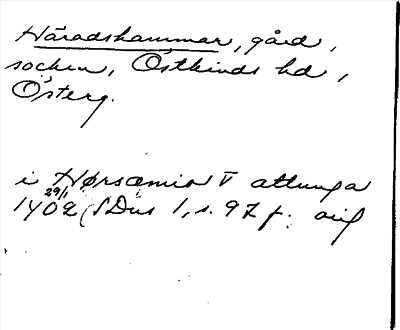 Häradshammar, gård,
socken, Östkinds hd,
Österg.
i Hørsæmio V attunga
29/1
1402 (SDns 1, s. 97 f. orig